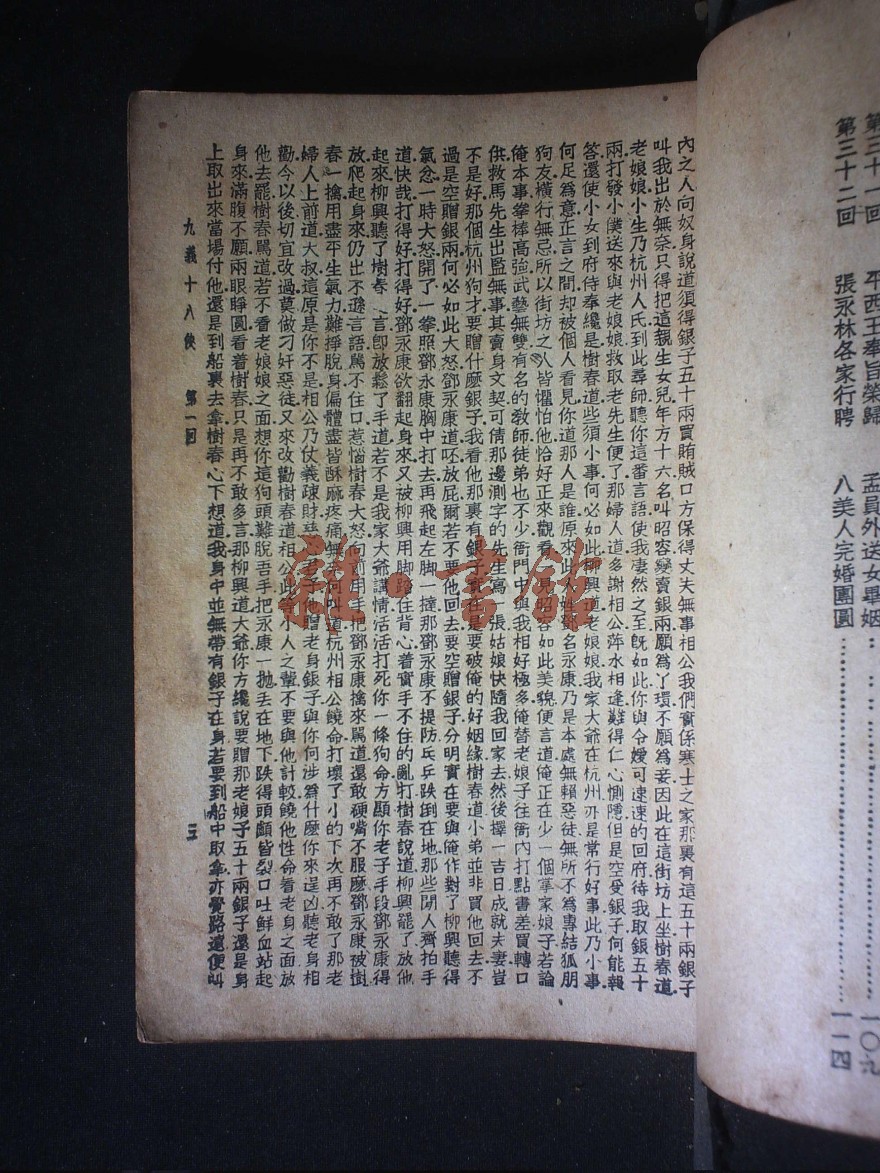 第三十一回　平西王奉旨榮歸　孟員外送女畢姻……一〇九
第三十二回　張永林各家行聘　八美人完婚團圓……一一四
內之人向奴身說道須得銀子五十兩買賄賊口方保得丈夫無事相公我們實係寒士之家那裏有這五十兩銀子
叫我出於無奈只得把這親生女兒年方十六名叫昭容變賣銀兩願爲丫環不願爲妾因此在這街坊上坐樹春道
老娘娘小生乃杭州人氏到此尋師聽你這番言語使我淒然之至旣如此你與令嬡可速速的回府待我取銀五十
兩打發小僕送來與老娘娘救取老先生便了那婦人道多謝相公萍水相逢難得仁心惻隱但是空受銀子何能報
答還使小女到府侍奉纔是樹春道些須小事何必如此柳興道老娘娘我家大爺在杭州亦是常行好事此乃小事
何足爲意正言之間却被個人看見你道那人是誰原來此人姓鄧名永康乃是本處無賴惡徒無所不爲專結狐朋
狗友橫行無忌所以街坊之人皆懼怕他恰好正來觀看見昭容如此美貌便言道俺正在少一個掌家娘子若論
俺本事拳棒高強武藝無雙有名的敎師徒弟也不少衙門中與我相好極多俺替老娘子往衙內打點書差買轉口
供救馬先生出監無事其賣身文契可倩那邊測字的先生高張姑娘快隨我回家去然後擇一吉日成就夫妻豈
不是好那個杭州狗才要贈什麼銀子我看他那裏有銀子實在是要破俺的好姻緣樹春道小弟並非買他回去不
過是空贈銀兩何必如此大怒鄧永康道呸放屁爾若不要他回去要空贈銀子分明實在要與俺作對了柳興聽得
氣忿一時大怒開了一拳照鄧永康胸中打去再飛起左脚一撞那鄧永康不提防乒乒跌倒在地那些閒人齊拍手
道快哉打得好打得好鄧永康欲翻起身來又被柳興用脚踏住背心着實手不住的亂打樹春說道柳興罷了放他
起來柳興聽了樹春之言卽放鬆了手道若不是我家大爺講情活活打死你一條狗命方顯你老子手段鄧永康得
放爬起身來仍出不遜言語罵不住口惹惱樹春大怒向前用手把鄧永康擒來罵道還敢硬嘴不服麼鄧永康被樹
春一擒用盡平生氣力難掙脫身偏體盡皆酥麻疼痛無奈何叫道杭州相公饒命打壞了小的下次再不敢了那老
婦人上前道大叔這原是你不是相公乃仗義疎財慈心君子他贈老身銀子與你何涉爲什麼你來逞凶聽老身相
勸今以後切宜改過莫做刁奸惡徒又來改勸樹春道相公此等小人之輩不要與他計較饒他性命看老身之面放
他去罷樹春罵道若不看老娘娘之面想你這狗頭難脫吾手把永康一拋丢在地下跌得頭顱皆裂口吐鮮血站起
身來滿腹不願兩眼睜圓看着樹春只是再不敢多言那柳興道大爺你方纔說要贈那老娘子五十兩銀子還是身
上取出來當場付他還是到船裏去拿樹春心下想道我身中並無帶有銀子在身若要到船中取拿亦覺路遠便叫
九義十八俠　第一回　三
雜·書館